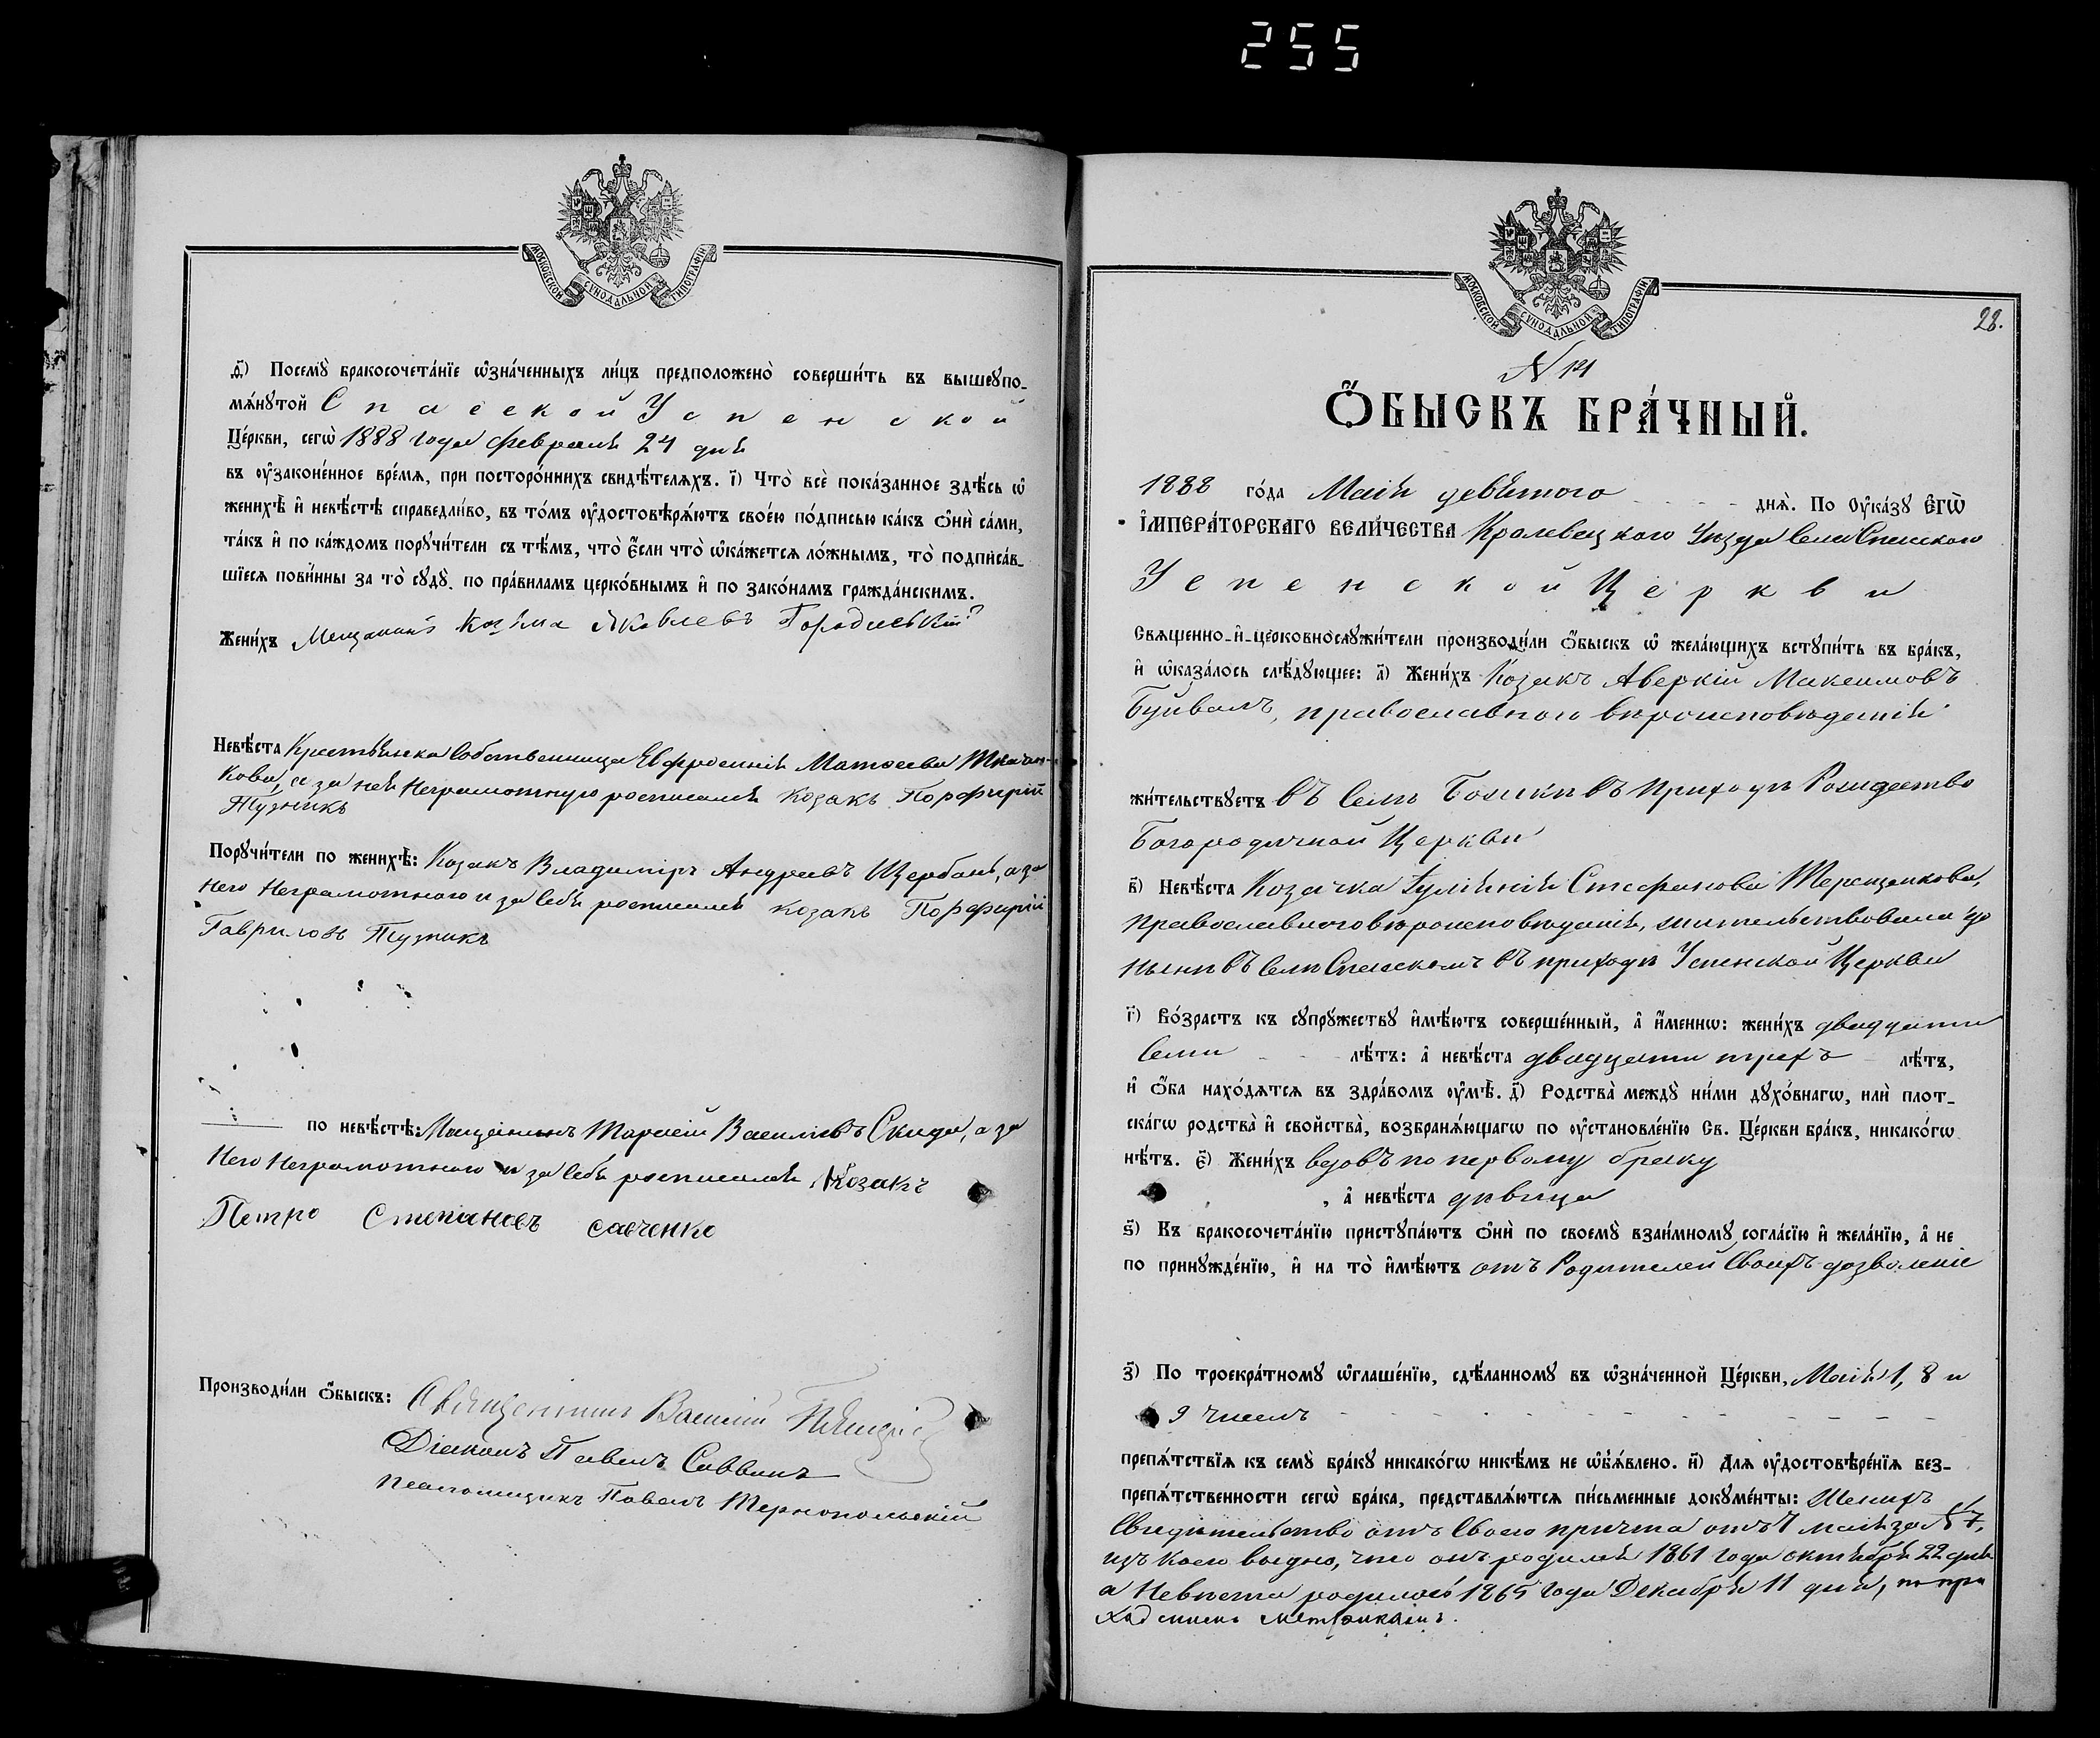 255
МОСКОВСКОЙ СѴНОДАЛЬНОЙ ТИПОГРАФІИ
д҃і) Посемꙋ̀ бракосочета́нїе ѡ҆зна́ченныхъ ли́цъ предположено̀ соверши́ть въ вышеꙋпо-
мѧ́нꙋтой Спасской Успенской
Це́ркви, сегѡ̀ 1888 года февраля 24 дня
въ ᲂу҆законе́нное вре́мѧ, при посторо́ннихъ свидѣ́телѧхъ. і҃) Что̀ всѐ пока́занное здѣ́сь ѡ҆
женихѣ̀ и҆ невѣ́стѣ справедли́во, въ то́мъ ᲂу҆достовѣрѧ́ютъ свое́ю по́дписью ка́къ ѻ҆нѝ са́ми,
та́къ и҆ по ка́ждомъ порꙋчи́тели съ тѣ́мъ, что̀ є҆́сли что̀ ѡ҆ка́жется ло́жнымъ, то̀ подписа́в-
шїеся пови́нны за то̀ сꙋдꙋ̀ по пра́виламъ церко́внымъ и҆ по зако́намъ гражда́нскимъ.
Жени́хъ Мещанинъ Козьма Яковлевъ Городиський
Невѣ́ста Крестьянка собственница Евфросинія Матѳеева Ткачен-
кова, а за нея неграмотную росписался козакъ Порфирий
Тузикъ
Порꙋчи́тели по женихѣ̀: Козакъ Владиміръ Андреевъ Щербань, а за
него неграмотного и за себя росписался козакъ Порфирий
Гаврилов Тузикъ
по невѣ́стѣ: Мещанинъ Тарасій Васильевъ Скида, а за
него неграмотного и за себя росписался Козакъ
Петро Степановъ савченко
Производи́ли ѻ҆́быскъ: Священникъ Василий
Діаконъ Павелъ Саввинъ
псаломщикъ Павелъ Тернопольскій
28.
МОСКОВСКОЙ СѴНОДАЛЬНОЙ ТИПОГРАФІИ
N 14
Ѻ҆́БЫСКЪ БРА́ЧНЫЙ.
1888 го́да Маія девятого днѧ̀. По Оу҆ка́зꙋ Є҆гѡ̀
І҆МПЕРА́ТОРСКАГО ВЕЛИ́ЧЕСТВА Кролевецкого Уѣзда Села Спасского
Успенской Церкви
Свѧще́нно-и҆-церковнослꙋжи́тели производи́ли ѻ҆́быскъ ѡ҆ жела́ющихъ встꙋпи́ть въ бра́къ,
и҆ ѡ҆каза́лось слѣ́дꙋющее: а҃) Жени́хъ Козакъ Аверкій Максимовъ
Буйвалъ, православного вѣроисповѣданія
жи́тельствꙋетъ въ Селѣ Божикъ въ приходѣ Рождество
Богородичной Церкви
в҃) Невѣ́ста Козачка Іуліянія Стефанова Терещенкова,
православного вѣроисповѣданія, жительствовала до
нынѣ въ Селѣ Спасскомъ въ приходѣ Успенской Церкви
г҃) Во́зрастъ къ сꙋпрꙋ́жествꙋ и҆мѣ́ютъ соверше́нный, а҆ и҆́менно: жени́хъ двадцати
семи лѣ́тъ: а҆ невѣ́ста двадцати трехъ лѣ́тъ,
и҆ ѻ҆́ба нахо́дѧтся въ здра́вомъ ᲂу҆мѣ̀. д҃) Родства̀ междꙋ̀ ни́ми дꙋхо́внагѡ, илѝ плот-
ска́гѡ родства̀ и҆ сво́йства, возбранѧ́ющагѡ по ᲂу҆становле́нїю Св. Це́ркви бра́къ, никако́гѡ
нѣ́тъ. є҃) Жени́хъ вдовъ по первому браку
, а҆ невѣ́ста дѣвица
ѕ҃) Къ бракосочета́нїю пристꙋпа́ютъ ѻ҆нѝ по своемꙋ̀ взаи́мномꙋ согла́сїю и҆ жела́нїю, а҆ не
по принꙋжде́нїю, и҆ на то̀ и҆мѣ́ютъ отъ Родителей своихъ дозволеніе
з҃) По троекра́тномꙋ ѡ҆глаше́нїю, сдѣ́ланномꙋ въ ѡ҆зна́ченной Це́ркви, Маія 1, 8 и
9 чиселъ
препѧ́тствїя къ семꙋ̀ бра́кꙋ никако́гѡ никѣ́мъ не ѡ҆б̾ѧ́влено. и҃) Для ᲂу҆достовѣре́нїя без-
препѧ́тственности сегѡ̀ бра́ка, представлѧ́ются пи́сьменные докꙋме́нты: Женихъ
свидѣтельство отъ своего причта отъ 7 маія за № 67,
изъ коего видно, что онъ родился 1861 года октября 22 дня
а Невѣста родилась 1865 года Декабря 11 дня, по при
ходскимъ метрикамъ.